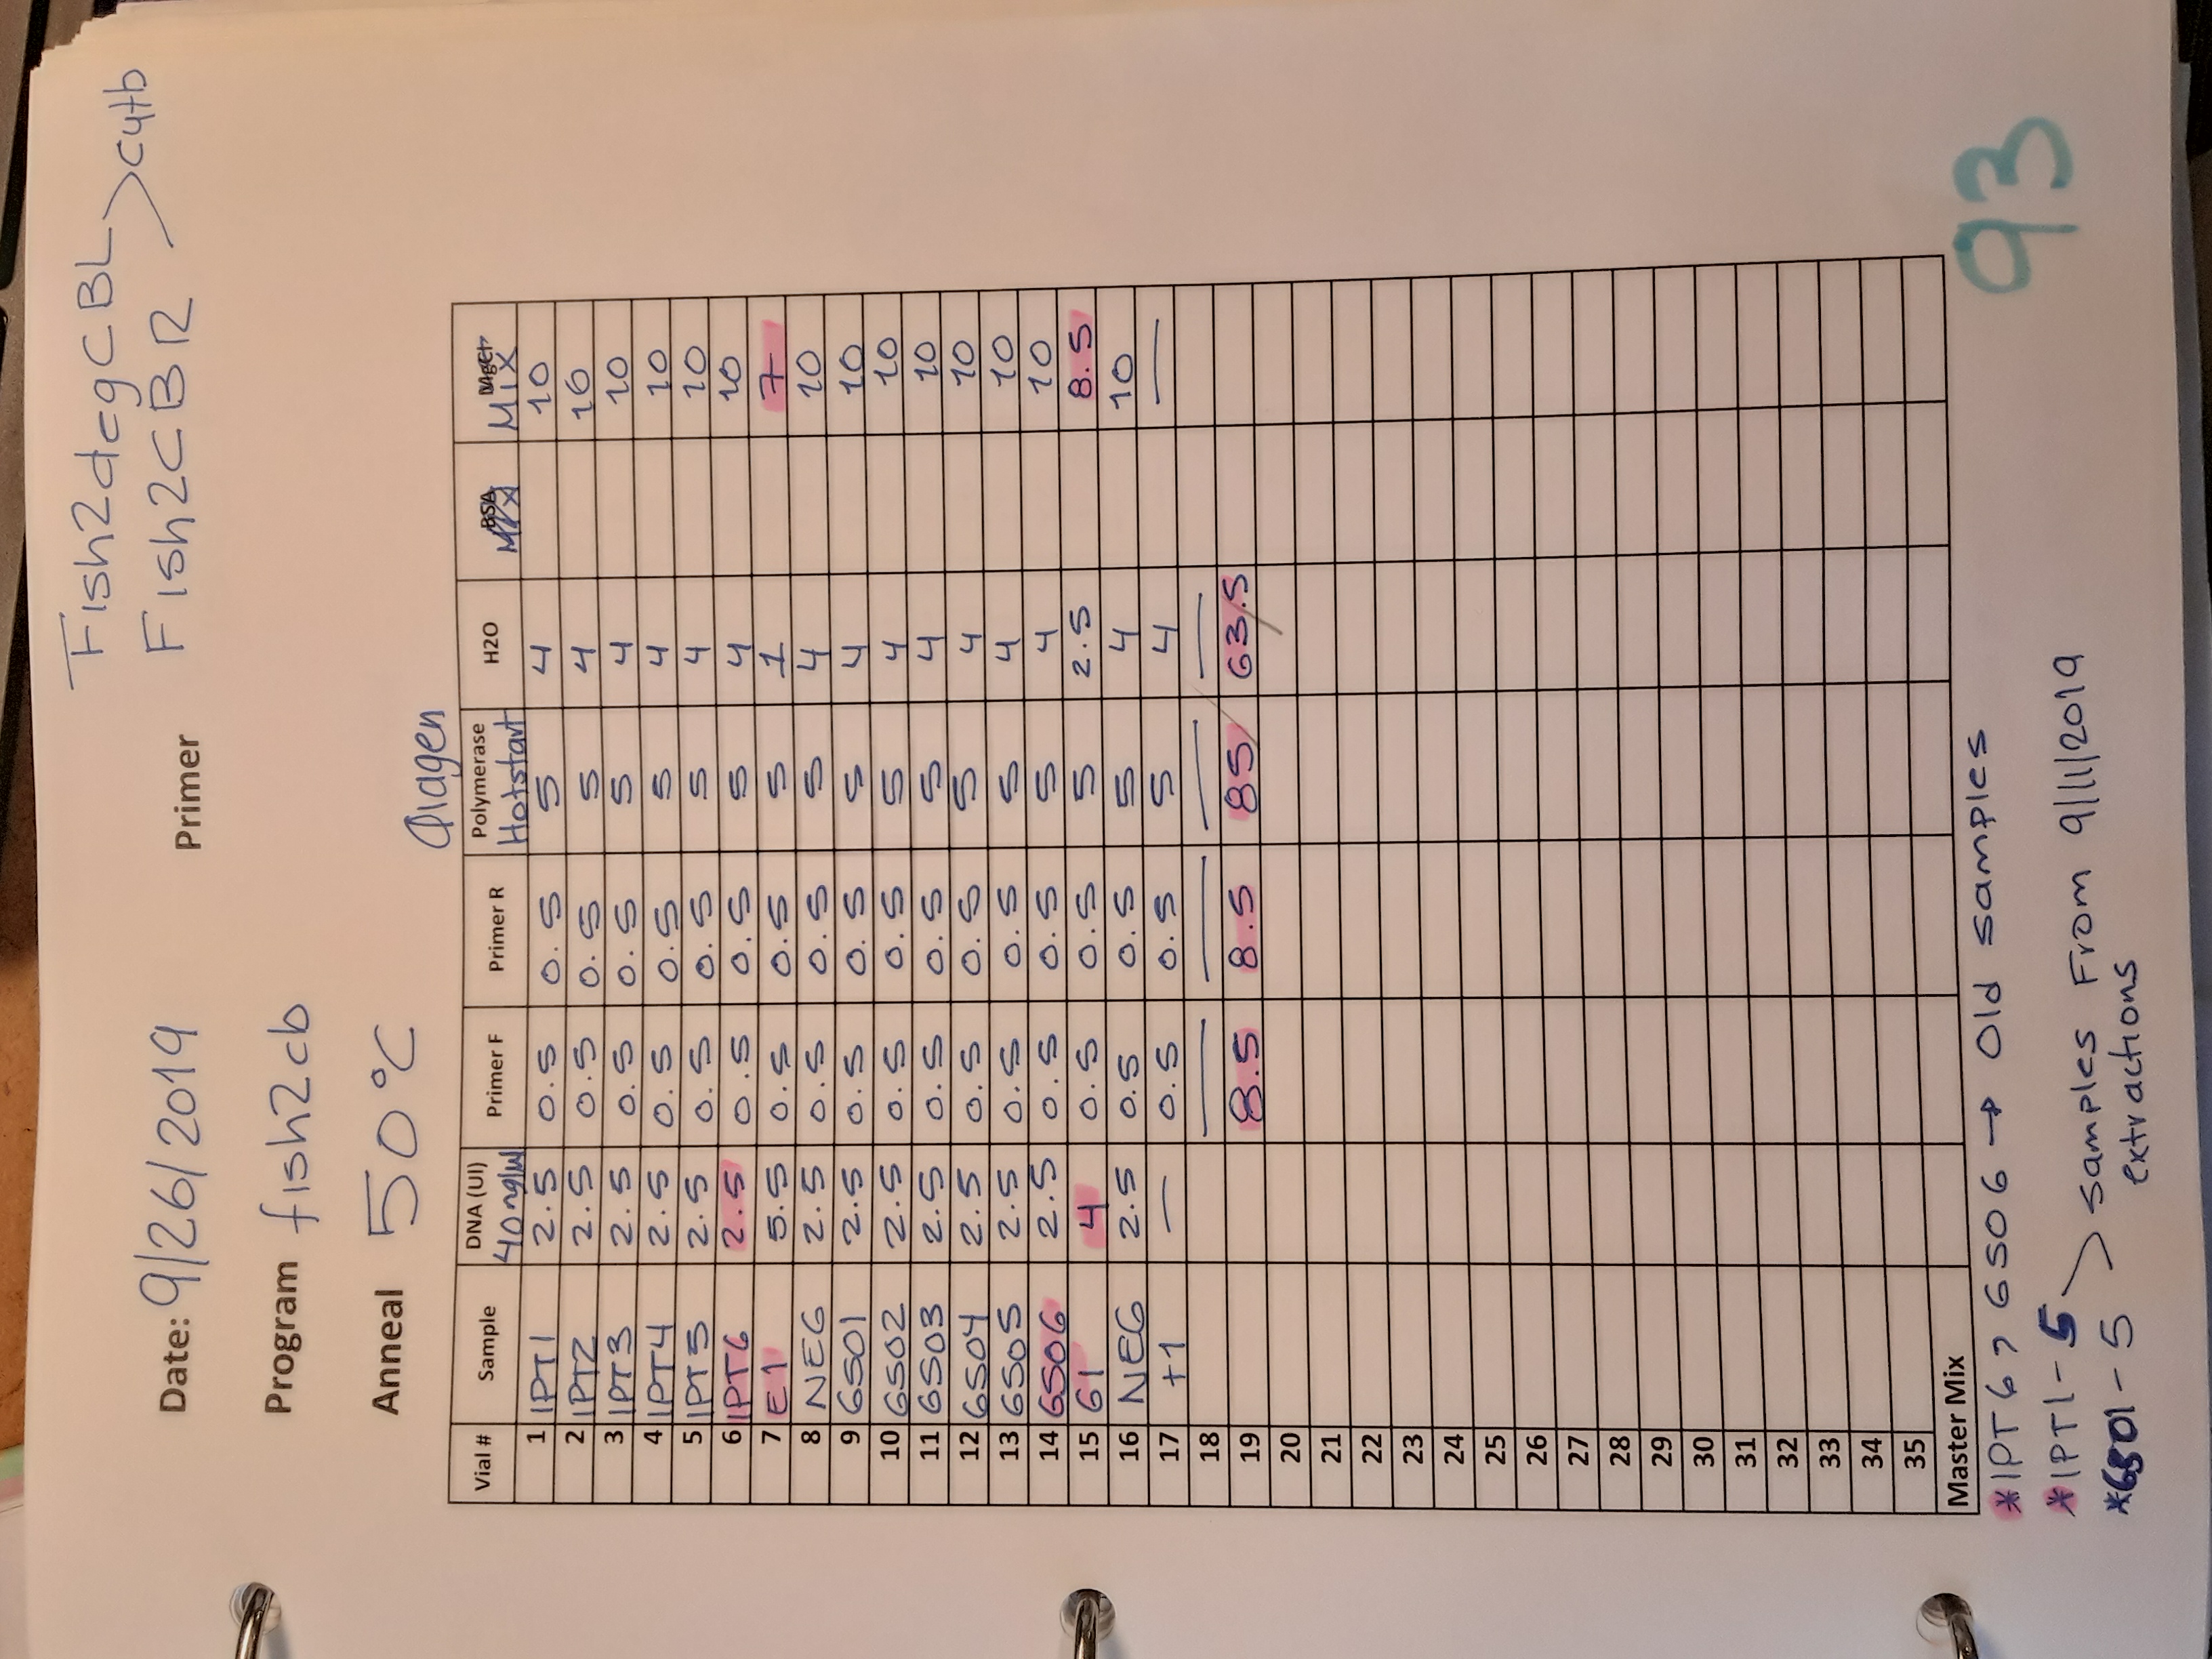 Fish2degCBL
Date: 9/26/2019 Primer Fish2CBR > cytb
Program fish2cb
Anneal 50°C
Qiagen
Vial # Sample DNA (Ul) Primer F Primer R Polymerase H2O BSA MgCl
40ng/ul Hotstart Mix Mix
1 IPT1 2.5 0.5 0.5 5 4 10
2 IPT2 2.5 0.5 0.5 5 4 10
3 IPT3 2.5 0.5 0.5 5 4 10
4 IPT4 2.5 0.5 0.5 5 4 10
5 IPT5 2.5 0.5 0.5 5 4 10
6 IPT6 2.5 0.5 0.5 5 4 10
7 E1 5.5 0.5 0.5 5 1 7
8 NEG 2.5 0.5 0.5 5 4 10
9 GS01 2.5 0.5 0.5 5 4 10
10 GS02 2.5 0.5 0.5 5 4 10
11 GS03 2.5 0.5 0.5 5 4 10
12 GS04 2.5 0.5 0.5 5 4 10
13 GS05 2.5 0.5 0.5 5 4 10
14 GS06 2.5 0.5 0.5 5 4 10
15 G1 4 0.5 0.5 5 2.5 8.5
16 NEG 2.5 0.5 0.5 5 4 10
17 +1 — 0.5 0.5 5 4 —
18
19 8.5 8.5 85 63.5
20
21
22
23
24
25
26
27
28
29
30
31
32
33
34
35
Master Mix
*IPT6, GS06 → Old samples
*IPT1-5
*GS01-5 > samples From 9/11/2019
extractions
93